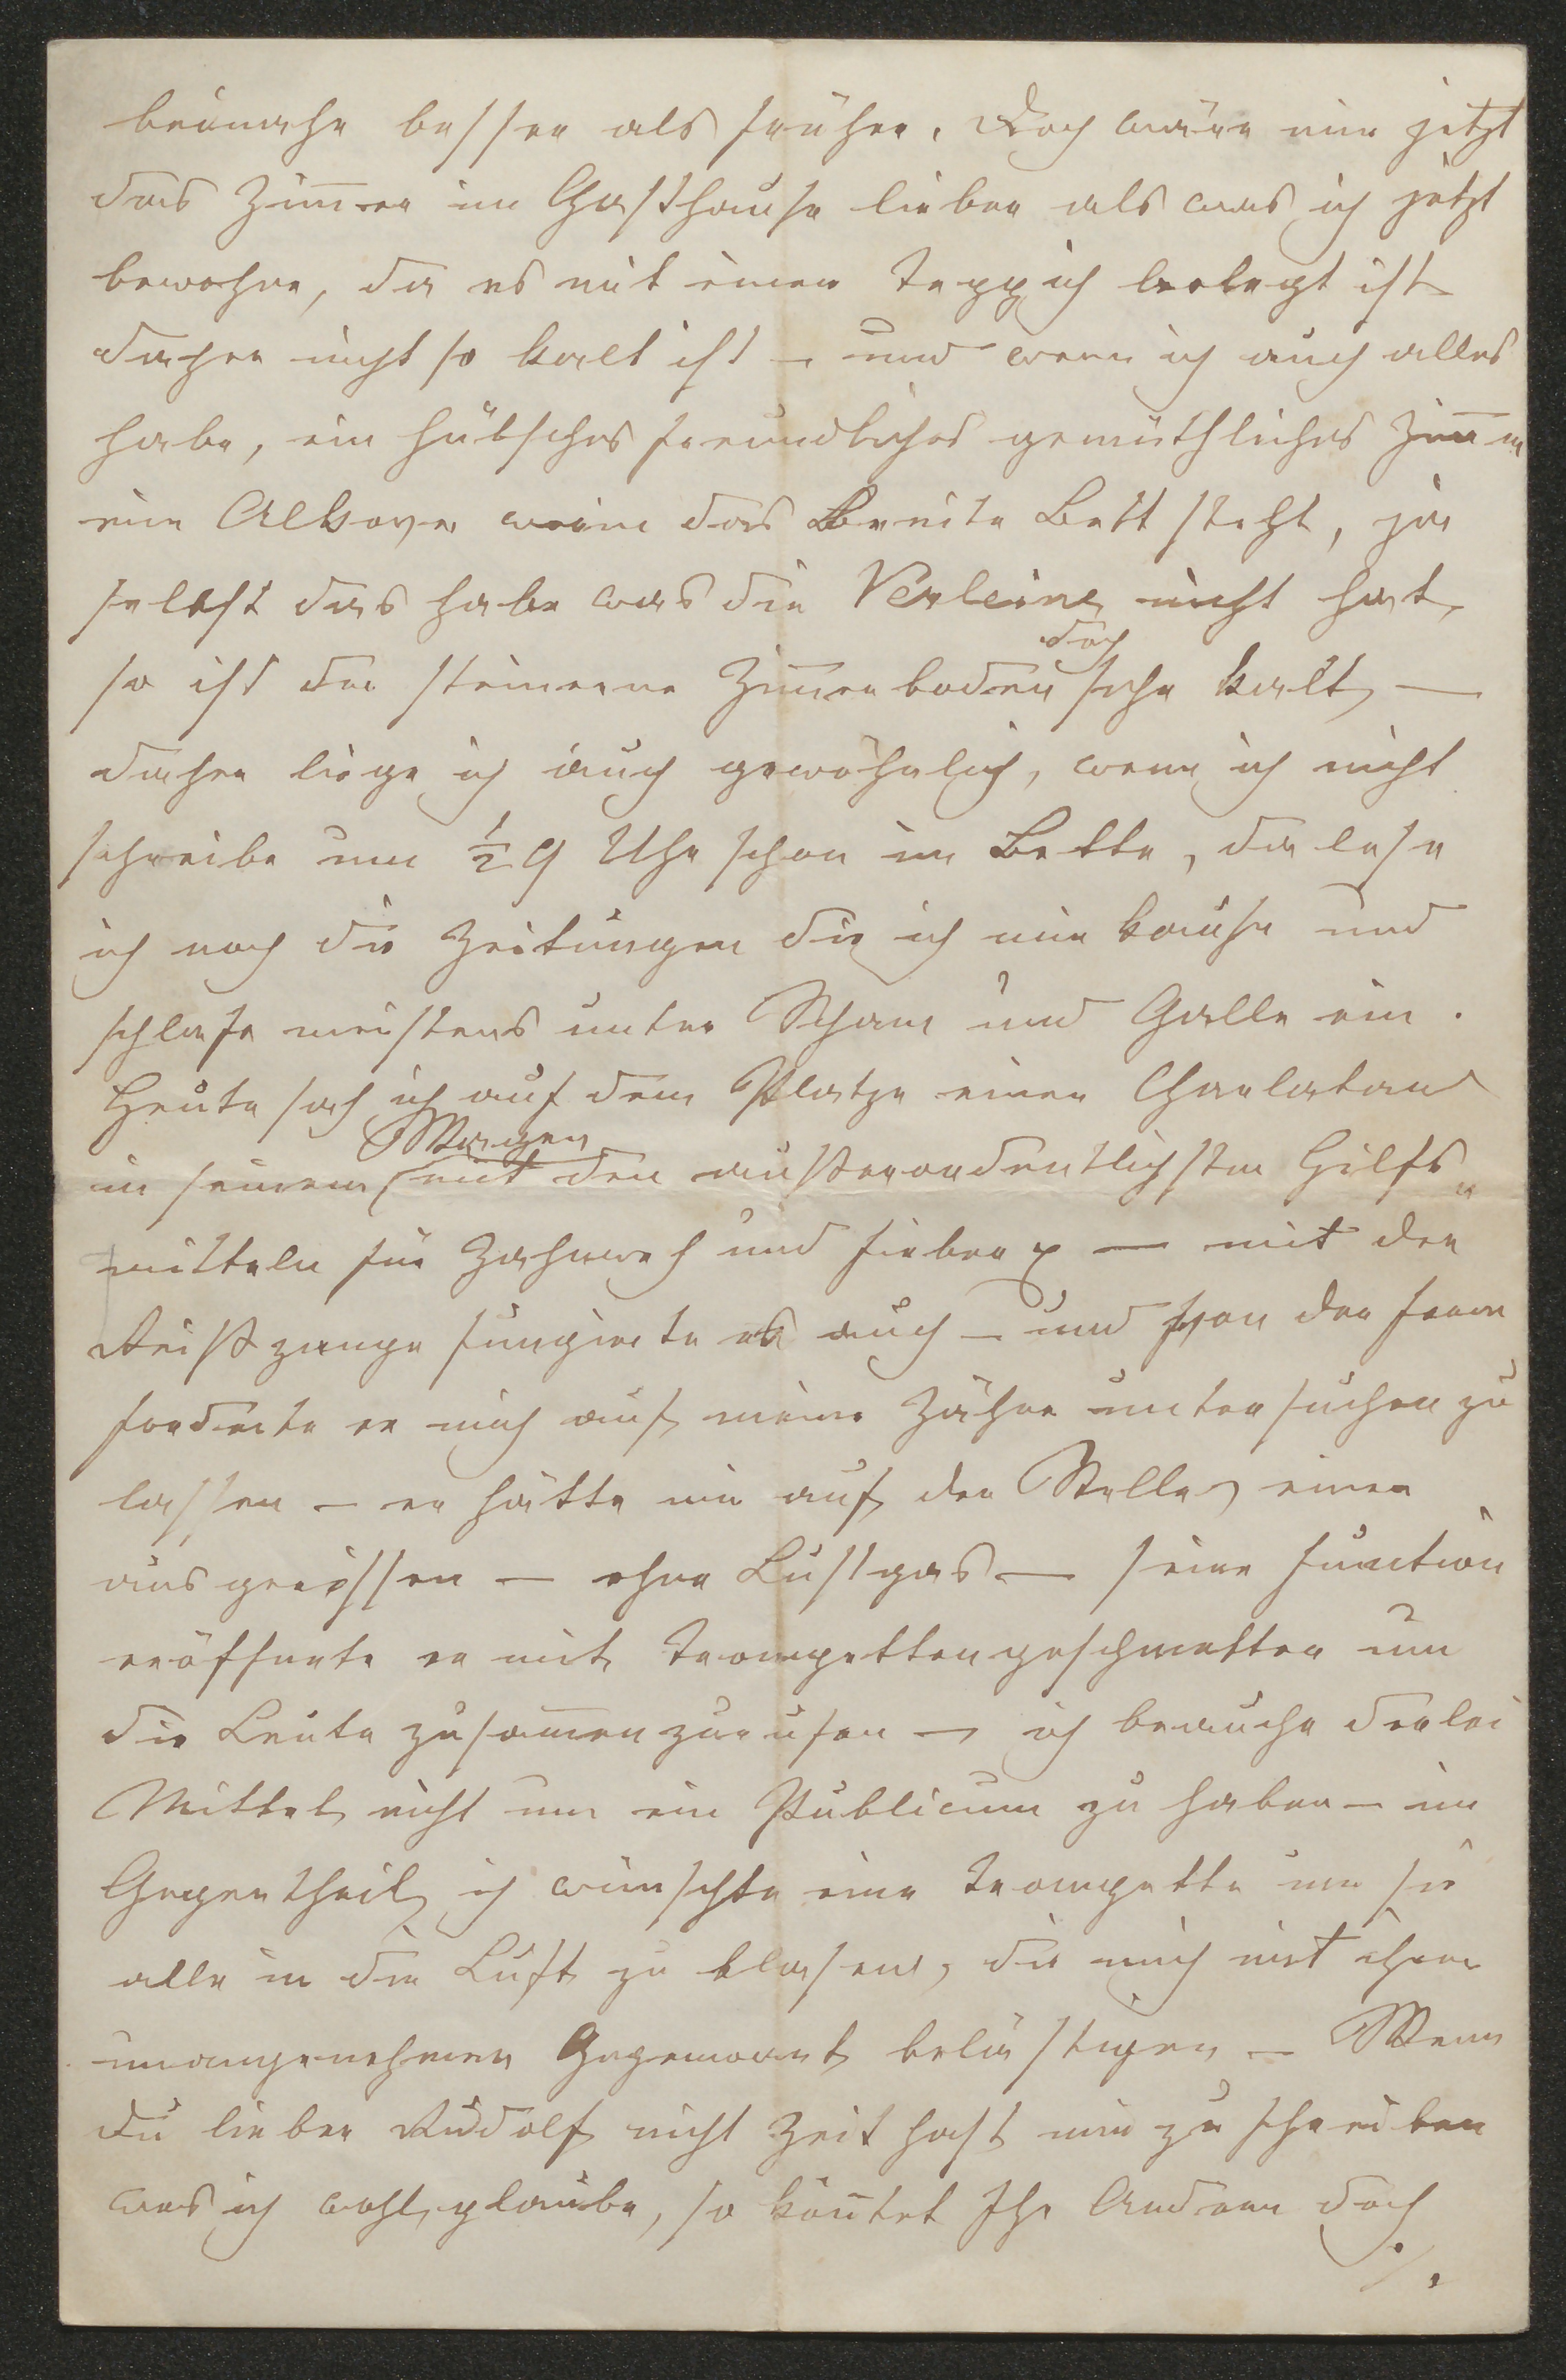 beinahe besser als früher. Doch wäre mir jetzt
das Zim̅er im Gasthause lieber als was ich jetzt
bewohne, da es mit einen Teppich belegt ist
daher nicht so kalt ist – und wenn ich auch alles
habe, ein hübsches freundliches gemüthliches Zim̅er
eine Alkove worin das Breite Bett steht, ja
selbst das habe was die nicht hat,
so ist der steinerne Zim̅erboden doch sehr kalt, —
daher liege ich auch gewöhnlich, wenn ich nicht
schreibe um ½ 9 Uhr schon im Bette, da lese
ich noch die Zeitungen die ich mir kaufe und
schlafe meistens unter und Galle ein.
Heute sah ich auf dem Platze einen Charlatan
in seinem Wagen mit den außerordentlichsten Hilfs„
mitteln für Zahnweh und Fieber — mit der
Reißzange fungirte er auch – und von der fern
forderte er mich auf, meine Zähne untersuchen zu
lassen – er hätte mir auf der Stelle einen
ausgerissen – ohne Lustgas — seine Function
eröffnete er mit Trompettengeschmetter um
die Leute zusam̅enzurufen – ich brauche derlei
Mittel nicht um ein Publicum zu haben – im
Gegentheil, ich wünschte eine Trompette um sie
alle in die Luft zu blasen, die mich mit ihrer
unangenehmen Gegenwart belästigen – Wenn
du lieber Rudolf nicht Zeit hast mir zu schreiben
was ich wohl glaube, so kön̅tet Ihr Andern doch
./.